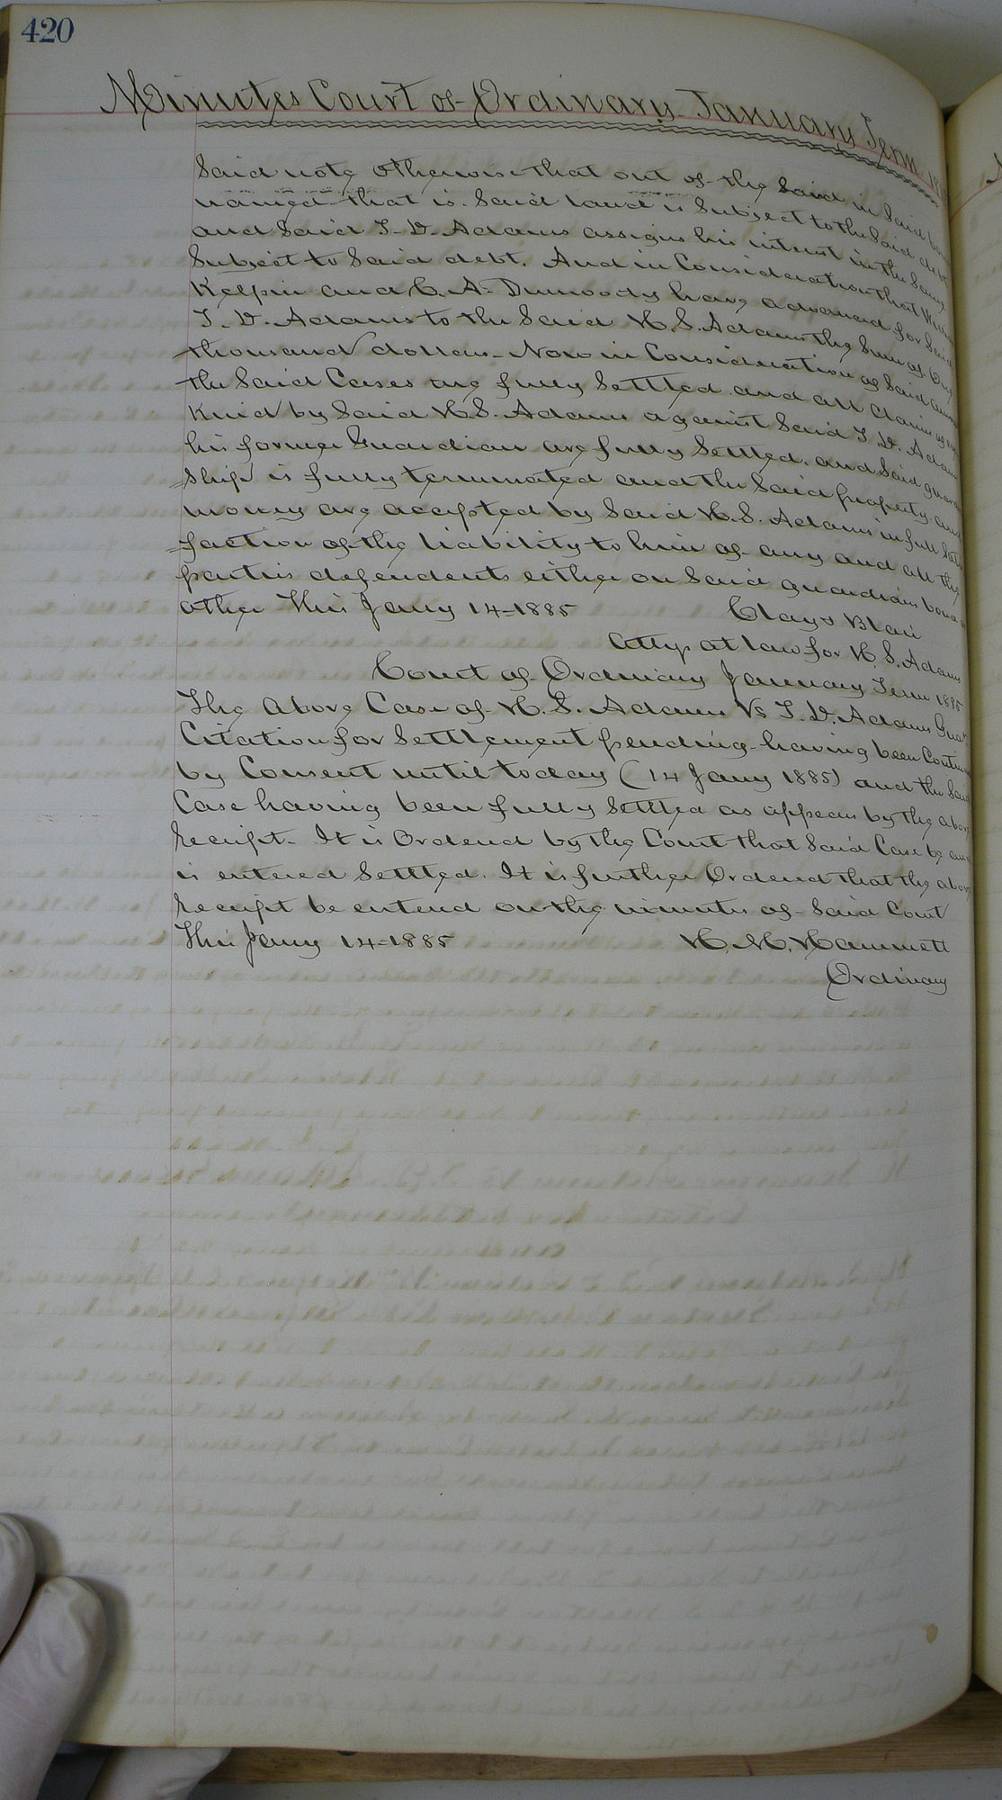 420
Minutes Court of Ordinary January Term
Said note otherwise that out of the Said in Said
named that is. Said land is Subject to the Said debt
and Said T. D. Adams assigns his intrest in the Same
Subject to Said debt. And in Consideration that
and C. A. Dunwoody have advanced for Said
T. D. Adams to the Said H. S. Adams the Sum of One
thousand dollars - Now in Consideration of Said
the Said Cases are fully Settled and all Claims of any
Kind by Said H. S. Adams against Said T. D. Adams
his former Guardian are fully Settled. and Said guardian
=Ship is fully terminated and the Said property and
money are accepted by Said H. S. Adams in full Satis
=faction of the liability to him of any and all the
parties defendents either on Said guardians bond or
other This Jany 14-1885 Clay & Blair
Attys at law for H. S. Adams
Court of Ordinary January Term 1885
The Above Case of H. S. Adams Vs T. D. Adams Guar
Citation for Settlement pending having been Continued
by Consent until today (14 Jany 1885) and the Said
Case having been fully Settled as appears by the above
receipt. It is Ordered by the Court that Said Case be and
is entered Settled. It is further Ordered that the above
receipt be entered on the minutes of Said Court
This Jany 14-1885 H. M. Hammett
Ordinary